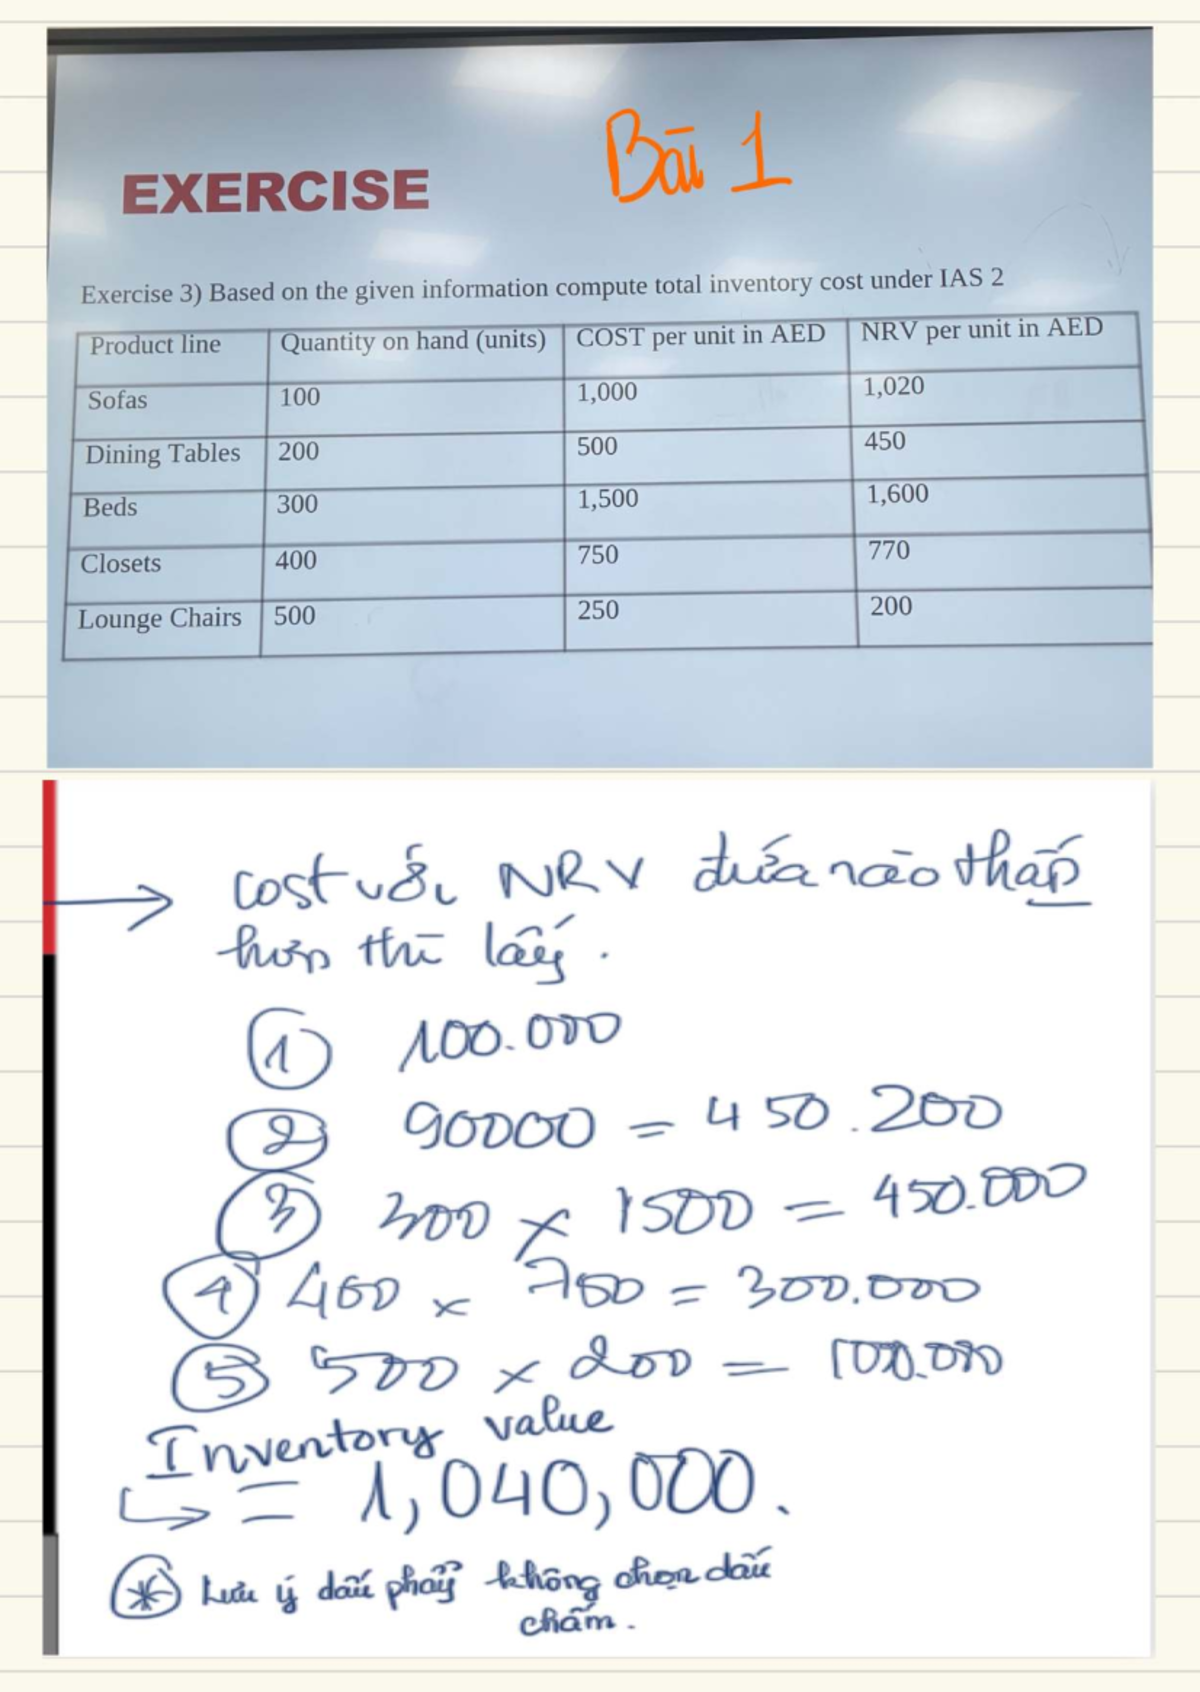 Bài 1
EXERCISE
Exercise 3) Based on the given information compute total inventory cost under IAS 2
Product line Quantity on hand (units) COST per unit in AED NRV per unit in AED
Sofas 100 1,000 1,020
Dining Tables 200 500 450
Beds 300 1,500 1,600
Closets 400 750 770
Lounge Chairs 500 250 200
cost với NRV đứa nào thấp
hơn thì lấy.
① 100.000
② 90000 = 450.200
③ 300 x 1500 = 450.000
④ 400 x 750 = 300.000
⑤ 500 x 200 = 100.000
Inventory value
↳ = 1,040,000.
* Lưu ý dấu phẩy không chọn dấu
chấm.